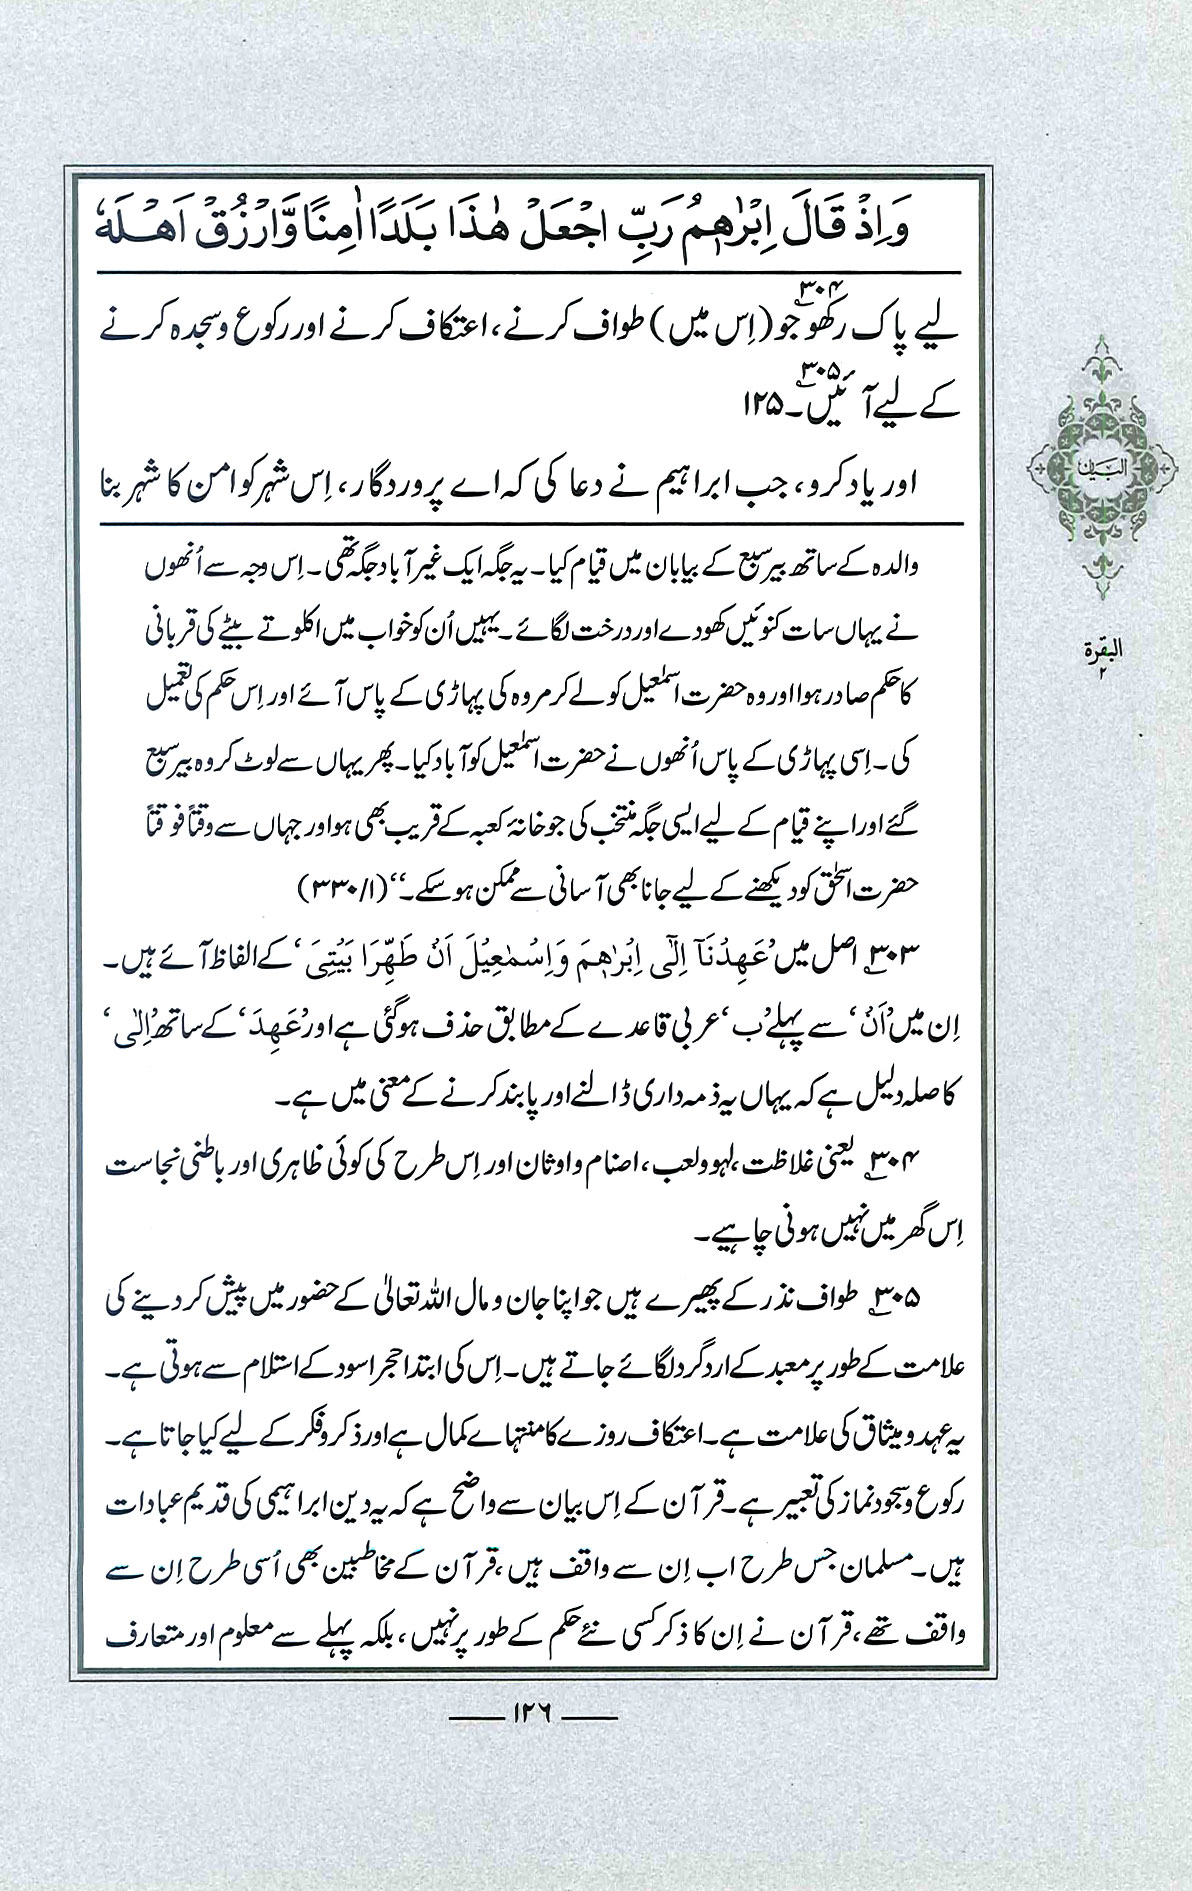 وَاِذْ قَالَ اِبْرٰهٖمُ رَبِّ اجْعَلْ هٰذَا بَلَدًا اٰمِنًا وَّارْزُقْ اَهْلَهٗ
لیے پاک رکھو۳۰۴ جو (اِس میں) طواف کرنے، اعتکاف کرنے اور رکوع و سجدہ کرنے
کے لیے آئیں۳۰۵۔ ۱۲۵
اور یاد کرو، جب ابراہیم نے دعا کی کہ اے پروردگار، اِس شہر کو امن کا شہر بنا
والدہ کے ساتھ بیر سبع کے بیابان میں قیام کیا۔ یہ جگہ ایک غیر آباد جگہ تھی۔ اِس وجہ سے اُنھوں
نے یہاں سات کنوئیں کھودے اور درخت لگائے۔ یہیں اُن کو خواب میں اکلوتے بیٹے کی قربانی
کا حکم صادر ہوا اور وہ حضرت اسمٰعیل کو لے کر مروہ کی پہاڑی کے پاس آئے اور اِس حکم کی تعمیل
کی۔ اِسی پہاڑی کے پاس اُنھوں نے حضرت اسمٰعیل کو آباد کیا۔ پھر یہاں سے لوٹ کر وہ بیر سبع
گئے اور اپنے قیام کے لیے ایسی جگہ منتخب کی جو خانۂ کعبہ کے قریب بھی ہو اور جہاں سے وقتاً فوقتاً
حضرت اسحٰق کو دیکھنے کے لیے جانا بھی آسانی سے ممکن ہو سکے۔‘‘ (۱/ ۳۳۰)
۳۰۳ اصل میں ’عَهِدْنَآ اِلٰٓى اِبْرٰهٖمَ وَاِسْمٰعِيْلَ اَنْ طَهِّرَا بَيْتِىَ‘ کے الفاظ آئے ہیں۔
اِن میں ’اَنْ‘ سے پہلے ’ب‘ عربی قاعدے کے مطابق حذف ہو گئی ہے اور ’عَهِدَ‘ کے ساتھ ’اِلٰى‘
کا صلہ دلیل ہے کہ یہاں یہ ذمہ داری ڈالنے اور پابند کرنے کے معنی میں ہے۔
۳۰۴ یعنی غلاظت، لہو و لعب، اصنام و اوثان اور اِس طرح کی کوئی ظاہری اور باطنی نجاست
اِس گھر میں نہیں ہونی چاہیے۔
۳۰۵ طواف نذر کے پھیرے ہیں جو اپنا جان و مال اللہ تعالیٰ کے حضور میں پیش کر دینے کی
علامت کے طور پر معبد کے ارد گرد لگائے جاتے ہیں۔ اِس کی ابتدا حجر اسود کے استلام سے ہوتی ہے۔
یہ عہد و میثاق کی علامت ہے۔ اعتکاف روزے کا منتہاے کمال ہے اور ذکر و فکر کے لیے کیا جاتا ہے۔
رکوع و سجود نماز کی تعبیر ہے۔ قرآن کے اِس بیان سے واضح ہے کہ یہ دین ابراہیمی کی قدیم عبادات
ہیں۔ مسلمان جس طرح اب اِن سے واقف ہیں، قرآن کے مخاطبین بھی اُسی طرح اِن سے
واقف تھے، قرآن نے اِن کا ذکر کسی نئے حکم کے طور پر نہیں، بلکہ پہلے سے معلوم اور متعارف
البیان
البقرة
۲
۱۲۶